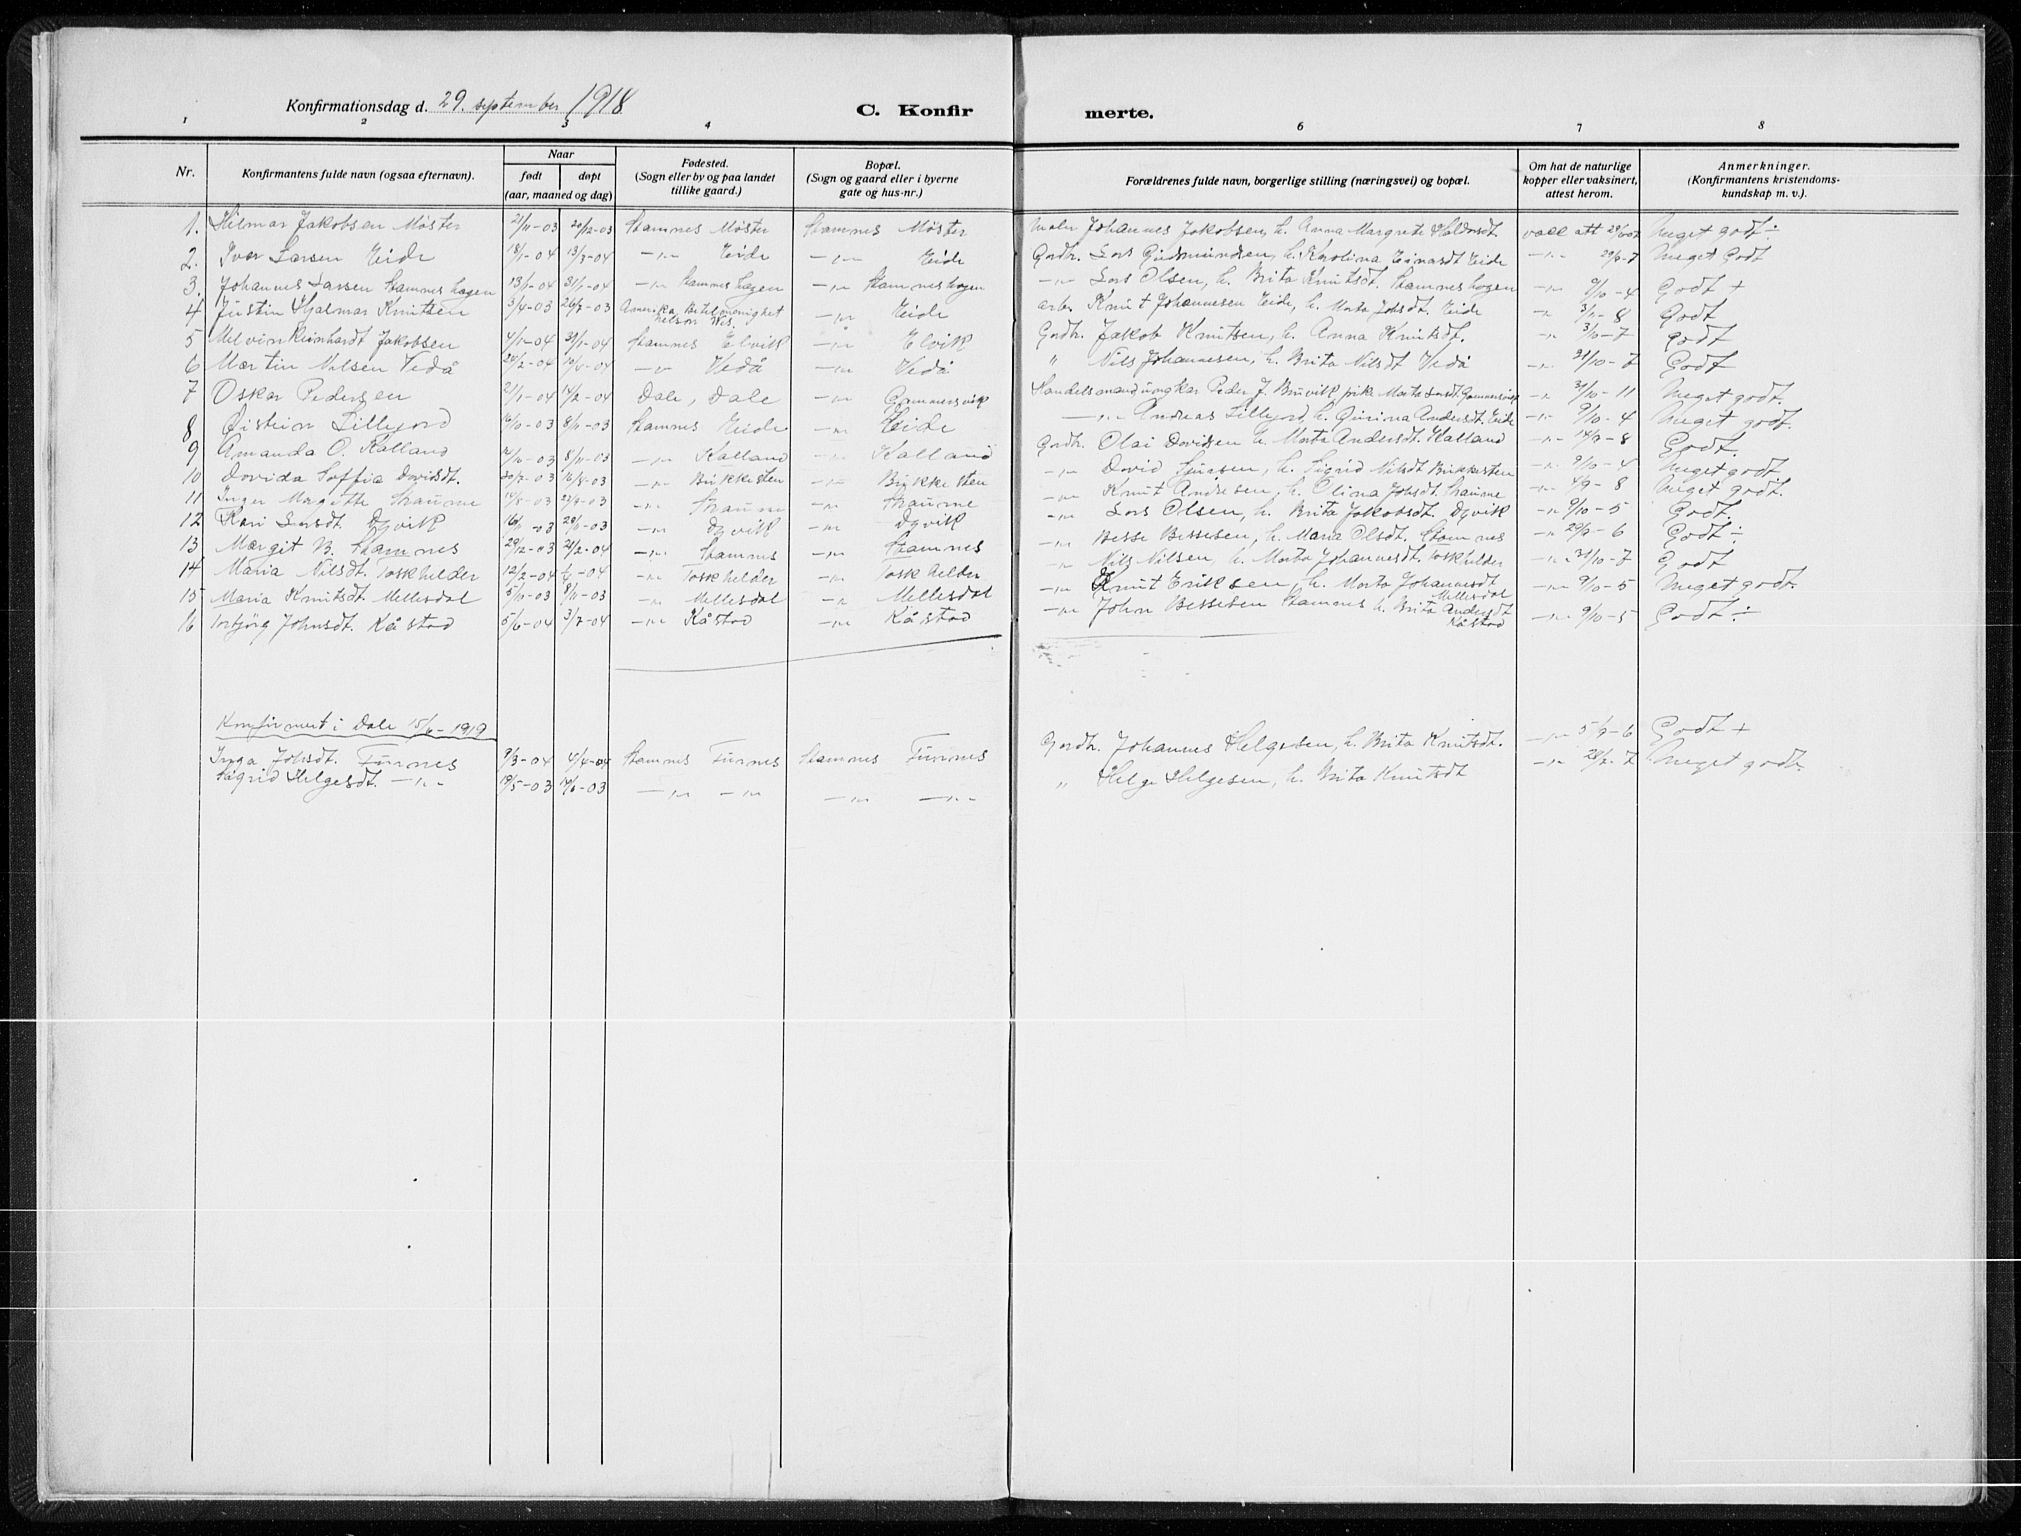 Konfirmationsdag d. 29. september 1918 C. Konfir merte.
1 2 3 4 6 7 8
Nr. Konfirmantens fulde navn (ogsaa efternavn). Naar født døpt (aar, maaned og dag) Fødested. (Sogn eller by og paa landet tillike gaard.) Bopæl. (Sogn og gaard eller i byerne gate og hus-nr.) Forældrenes fulde navn, borgerlige stilling (næringsvei) og bopæl. Om hat de naturlige kopper eller vaksinert, attest herom. Anmerkninger. (Konfirmantens kristendoms- kundskap m. v.)
1. Hilmar Jakobsen Møster 21/11-03 20/12-03 Stamnes Møster Stamnes Møster Maler Johannes Jakobsen, h. Anna Margrete Haldorsdt. vacc att Meget godt ÷
2. Ivar Larsen Eide 18/1-04 13/3-04 -"- Eide -"- Eide Gardbr. Lars Gudmundsen, h. Karolina Einarsdt Eide -"- Meget Godt
3. Johannes Larsen Stamneshagen 13/1-04 31/1-04 -"- Stamneshagen -"- Stamneshagen -"- Lars Olsen, h. Brita Knutsdt. Stamneshagen -"- 9/10-4 Godt +
4 Justin Hjalmar Knutsen 3/4-03 26/7-03 Amerika Betel menighet Nelson Wis. -"- Eide arb. Knut Johannesen Eide, h. Marta Johsdt. Eide -"- 3/11-8 Godt
5 Melvin Reinhardt Jakobsen 4/1-04 31/1-04 Stamnes Elvik -"- Elvik Gardbr. Jakob Knutsen, h. Anna Knutsdt. -"- 3/10-7 Godt
6 Martin Nilsen Vedå 24/2-04 10/4-04 -"- Vedå -"- Vedå " Nils Johannesen, h. Brita Nilsdt Vedå -"- 31/10-7 Godt
7 Oskar Pedersen 21/1-04 14/2-04 Dale, Dale -"- Gammersvik Handelsmand ungkar Peder J. Bruvik, pike Marta Larsdt. Gammersvik -"- 31/10-11 Meget godt.
8 Øistein Lillejord 16/10-03 8/11-03 Stamnes Eide -"- Eide -"- Andreas Lillejord, h. Qvirina Andersdt. Eide -"- 9/10-4 Meget godt.
9 Amanda O. Kalland 7/10-03 8/11-03 -"- Kalland -"- Kalland Gardbr. Olai Davidsen h. Marta Andersdt. Kalland -"- 14/9-8 Godt.
10 Davida Soffia Davidsdt. 30/7-03 16/8-03 -"- Bukkesten -"- Bukkesten -"- David h. Sigrid Nilsdt Bukkesten -"- 9/10-4 Meget godt
11 Inger Margitte Straume 14/8-03 27/9-03 -"- Straume -"- Straume -"- Knut Andersen, h. Olina Johsdt. Straume -"- 4/9-8 Meget godt.
12 Kari Larsdt. Dyvik 16/11-03 29/11-03 -"- Dyvik -"- Dyvik -"- Lars Olsen, h. Brita Jakobsdt. Dyvik -"- 9/10-5 Godt.
13 Margit B. Stamnes 29/12-03 21/2-04 -"- Stamnes -"- Stamnes -"- Besse Bessesen, h. Maria Olsdt. Stamnes -"- 29/9-6 Godt ÷
14 Maria Nilsdt. Toskhelder 12/2-04 1/4-04 -"- Toskhelder -"- Toskhelder -"- Nils Nilsen, h. Marta Johannesdt. Toskhelder -"- 31/10-7 Godt
15 Maria Knutsdt. Mellesdal 5/11-03 8/11-03 -"- Mellesdal -"- Mellesdal -"- Knut Eriksen, h. Marta Johannesdt Mellesdal -"- 9/10-5 Meget godt.
16 Torbjörg Johnsdt. Kåstad 5/6-04 3/7-04 -"- Kåstad -"- Kåstad -"- John Bessesen Stamnes h. Brita Andersdt Kåstad -"- 9/10-5 Godt ÷
Konfirmert i Dale 15/6-1919
Inga Johsdt. Furnes 9/3-04 4/4-04 Stamnes Furnes Stamnes Furnes Gardbr. Johannes Helgesen, h. Brita Knutsdt. -"- 5/9-6 Godt +
Sigrid Helgesdt. -"- 19/5-03 14/6-03 -"- -"- -"- -"- " Helge Helgesen, h. Brita Knutsdt -"- Meget godt.